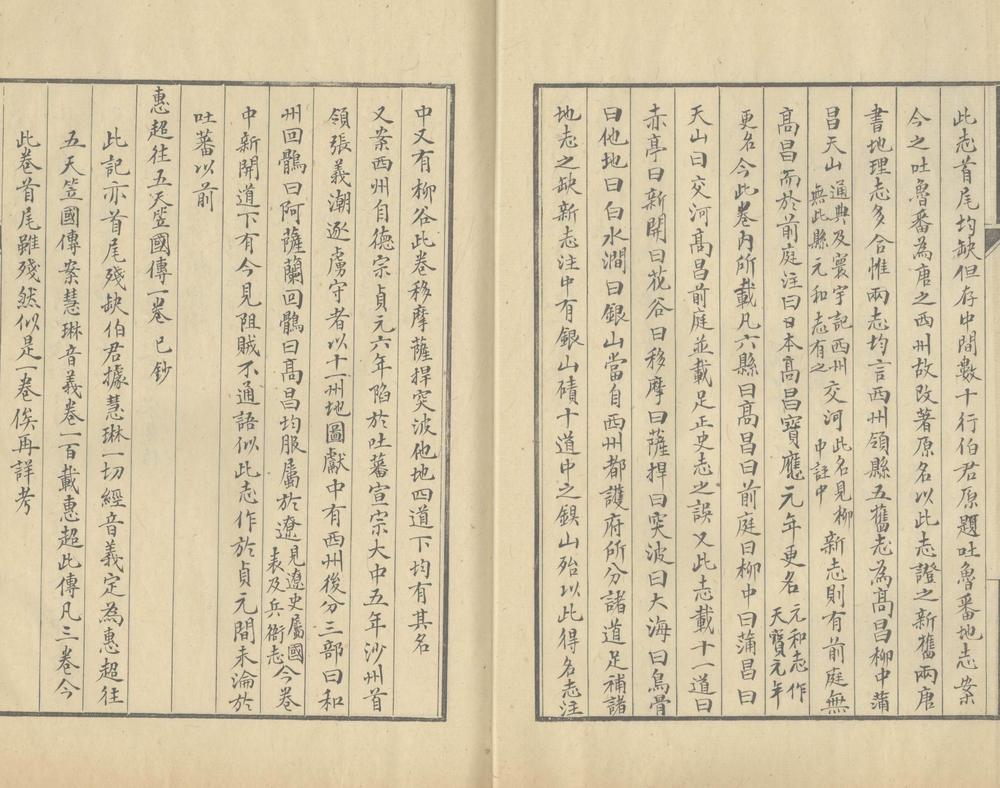 此志首尾均缺但存中間數十行伯君原題吐魯番地志案
今之吐魯番為唐之西州故改著原名以此志證之新舊兩唐
書地理志多合惟兩志均言西州領縣五舊志為高昌柳中蒲
昌天山通典及寰宇記西州無此縣元和志有之交河此名見柳中註中新志則有前庭無
高昌而於前庭注曰本高昌寶應元年更名元和志作天寶元年
更名今此卷內所載凡六縣曰高昌曰前庭曰柳中曰蒲昌曰
天山曰交河高昌前庭並載足正史志之誤又此志載十一道曰
赤亭曰新開曰花谷曰移摩曰薩捍曰突波曰大海曰烏骨
曰他地曰白水澗曰銀山當自西州都護府所分諸道足補諸
地志之缺新志注中有銀山磧十道中之銀山殆以此得名志注
中又有柳谷此卷移摩薩捍突波他地四道下均有其名
又案西州自德宗貞元六年陷於吐蕃宣宗大中五年沙州首
領張義潮逐虜守者以十一州地圖獻中有西州後分三部曰和
州回鶻曰阿薩蘭回鶻曰高昌均服屬於遼見遼史屬國表及兵衛志今卷
中新開道下有今見阻賊不通語似此志作於貞元間未淪於
吐蕃以前
惠超往五天笠國傳一卷 已鈔
此記亦首尾殘缺伯君據慧琳一切經音義定為惠超往
五天笠國傳案慧琳音義卷一百載惠超此傳凡三卷今
此卷首尾雖殘然似是一卷俟再詳考